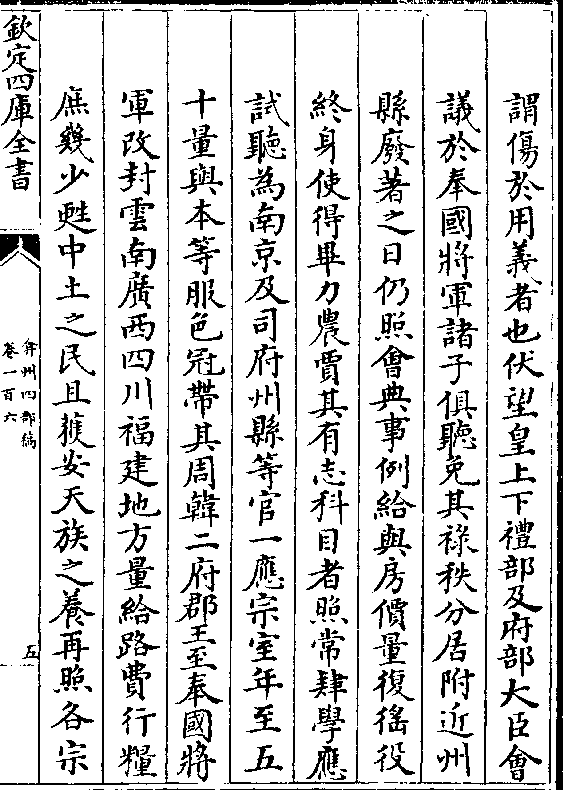 謂傷於用義者也伏望皇上下禮部及府部大臣會
議於奉國將軍諸子俱聽免其祿秩分居附近州
縣廢著之日仍照會典事例給與房價量復徭役
終身使得畢力農賈其有志科目者照常肄學應
試聽為南京及司府州縣等官一應宗室年至五
十量與本等服色冠帶其周韓二府郡王至奉國將
軍改封雲南廣西四川福建地方量給路費行糧
庶幾少甦中土之民且獲安天族之養再照各宗
欽定四庫全書
弇州四部稿
卷一百六
五